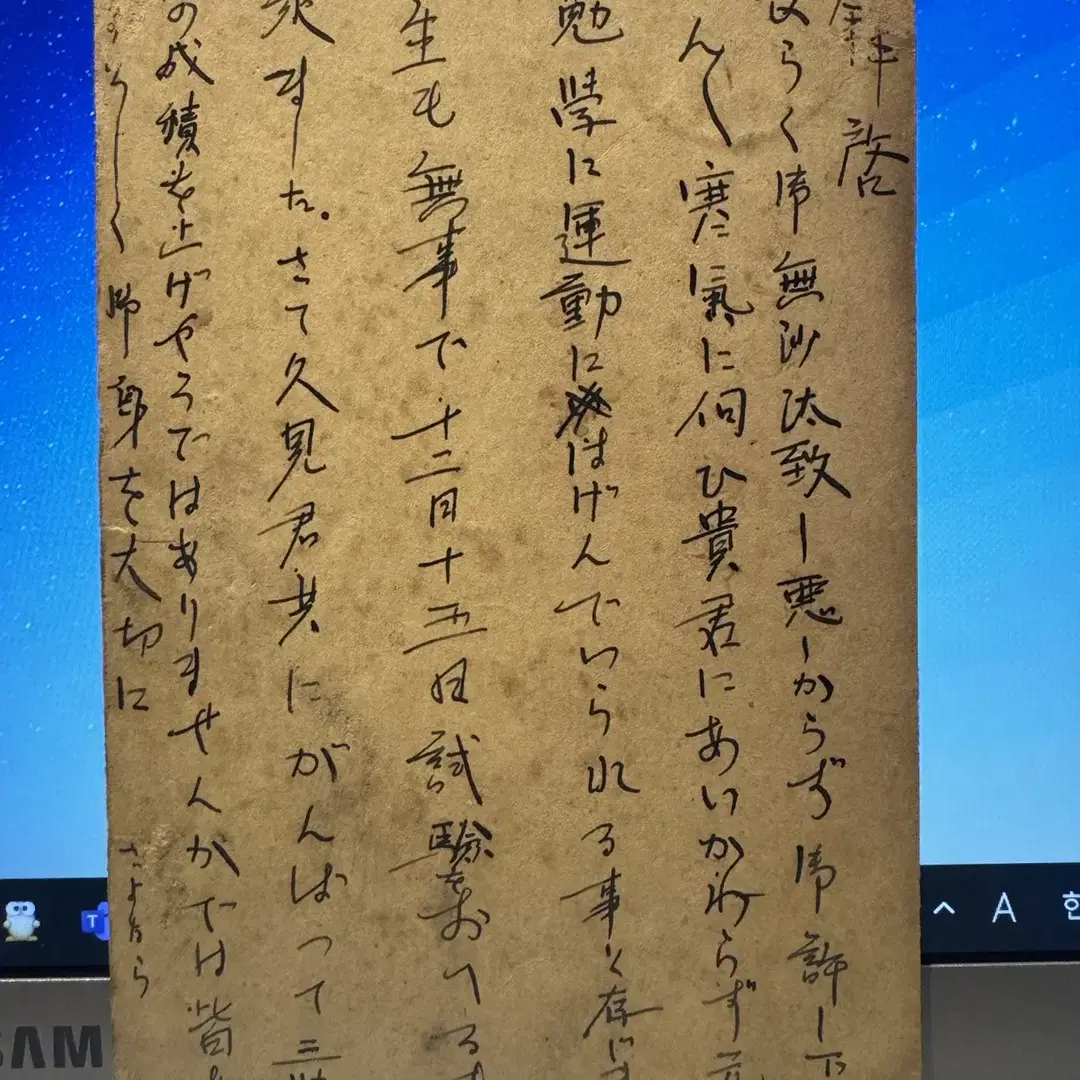 拝啓
しばらく御無沙汰致し悪しからず御許し下
寒氣に向ひ貴君にあいかわらず元
勉學に運動にはげんでいられる事と存じま
生も無事で十二月十五日試験をお
ました。さて久見君共にがんばって三
の成積を上げやうではありませんかでは皆
よろしく御身を大切に
さよなら
A
한
SAM